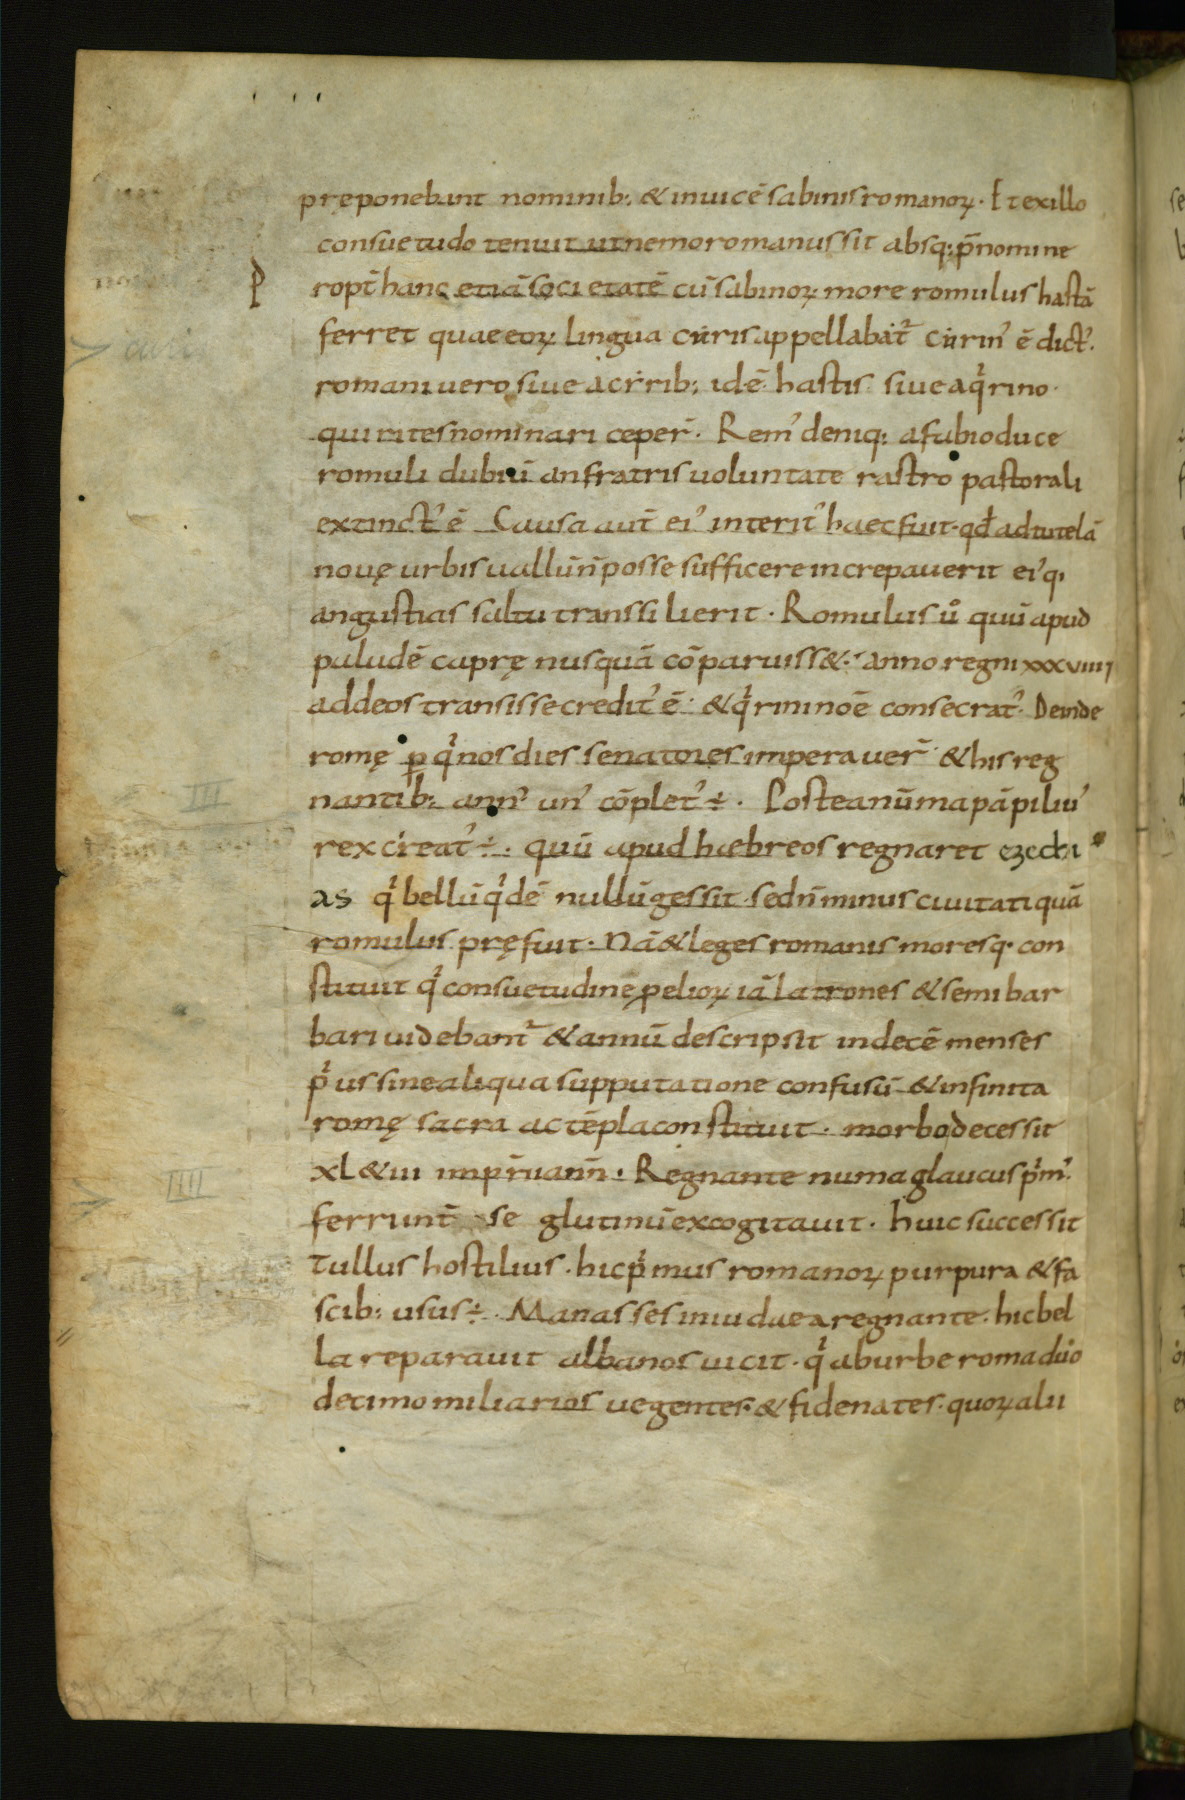 pręponebant nominib; & inuicē sabinis romanoꝝ. Et exillo
consuetudo tenuit utnemoromanussit absq; p̄nomine
P ropt̄ hanc etiā societatē cū sabinoꝝ more romulus hastā
ferret quae eoꝝ lingua curis appellabat᷑ curin᾿ ē dict᾿.
romani uero siue acirrib; idē hastis siue aqͥrino.
quirites nominari ceper̄. Rem᾿ deniq; afabio duce
romuli dubiū anfratris uoluntate rastro pastorali
extinct᾿ ē Causa aut̄ ei᾿ interit᾿ haec fuit. qđ adtutelā
nouę urbis uallū n̄ posse sufficere increpauerit ei᾿q;
angustias saltu transsilierit. Romulus uͦ quū apud
paludē caprę nusquā cōparuiss&. anno regni xxxviiii
addeos transisse credit᾿ ē & qͥrini noē consecrat᾿. Deinde
romę ꝑ qͥnos dies senatores imperauer̄ & his reg
nantib; ann᾿ un᾿ cōplet᾿ ÷. Postea nūma pāpiliu᾿
rex creat᾿ ÷. quū apud haebreos regnaret ezechi
as qͥ bellū qͥdē nullū gessit sed n̄ minus ciuitati quā
romulus pręfuit. Nā & leges romanis moresq. con
stituit qͥ consuetudine ꝓelioꝝ iā latrones & semibar
bari uidebant᷑ & annū descripsit indecē menses
pͥus sine aliqua supputatione confusū & infinita
romę sacra ac tēpla constituit. morbo decessit
xl & iii imperii ann̄. Regnante numa glaucus pͥm᾿
ferrunt̄ se glutinū excogitauit. huic successit
Tullus hostilius. hic pͥmus romanoꝝ purpura & fa
scib; usus ÷. Manasses iniudaea regnante. hic bel
la reparauit albanos uicit. qͥ aburbe roma duo
decimo miliarios uegentes. & fidenates. quoꝝ alii
curis
III
IIII